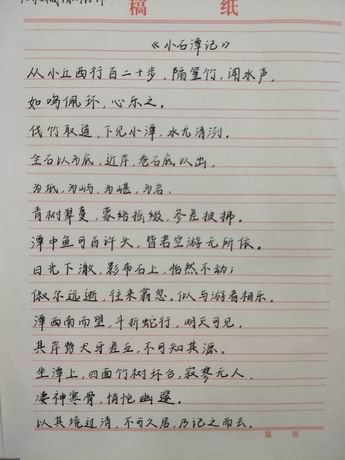 稿 纸
《小石潭记》
从小丘西行百二十步,隔篁竹,闻水声,
如鸣佩环,心乐之。
伐竹取道,下见小潭,水尤清冽。
全石以为底,近岸,卷石底以出,
为坻,为屿,为嵁,为岩。
青树翠蔓,蒙络摇缀,参差披拂。
潭中鱼可百许头,皆若空游无所依。
日光下澈,影布石上,怡然不动;
俶尔远逝,往来翕忽。似与游者相乐。
潭西南而望,斗折蛇行,明灭可见,
其岸势犬牙差互,不可知其源。
坐潭上,四面竹树环合,寂寥无人,
凄神寒骨,悄怆幽邃。
以其境过清,不可久居,乃记之而去。
第 页